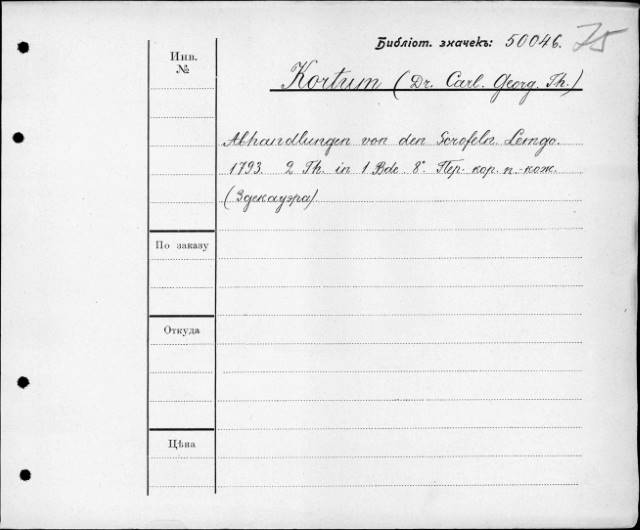 Библіот. значекъ: 50046. 75
Инв. №
Kortum (Dr. Carl. Georg. Th.)
Abhandlungen von den Scrofeln. Lemgo.
1793. 2 Th. in 1 Bde 8°. Пер. кор. п.-кож.
(Здекауэра)
По заказу
Откуда
Цѣна